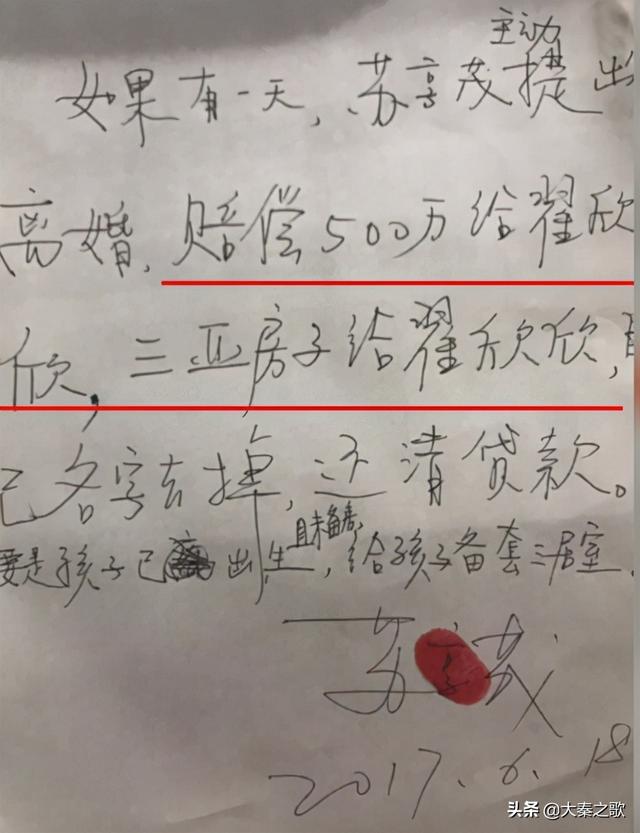 主动
如果有一天，苏享茂提出
离婚，赔偿500万给翟欣
欣，三亚房子给翟欣欣，自
己名字去掉，还清贷款。
且未备房，
要是孩子已出生，给孩子备套三居室
苏享茂
2017.6.18
头条@大秦之歌